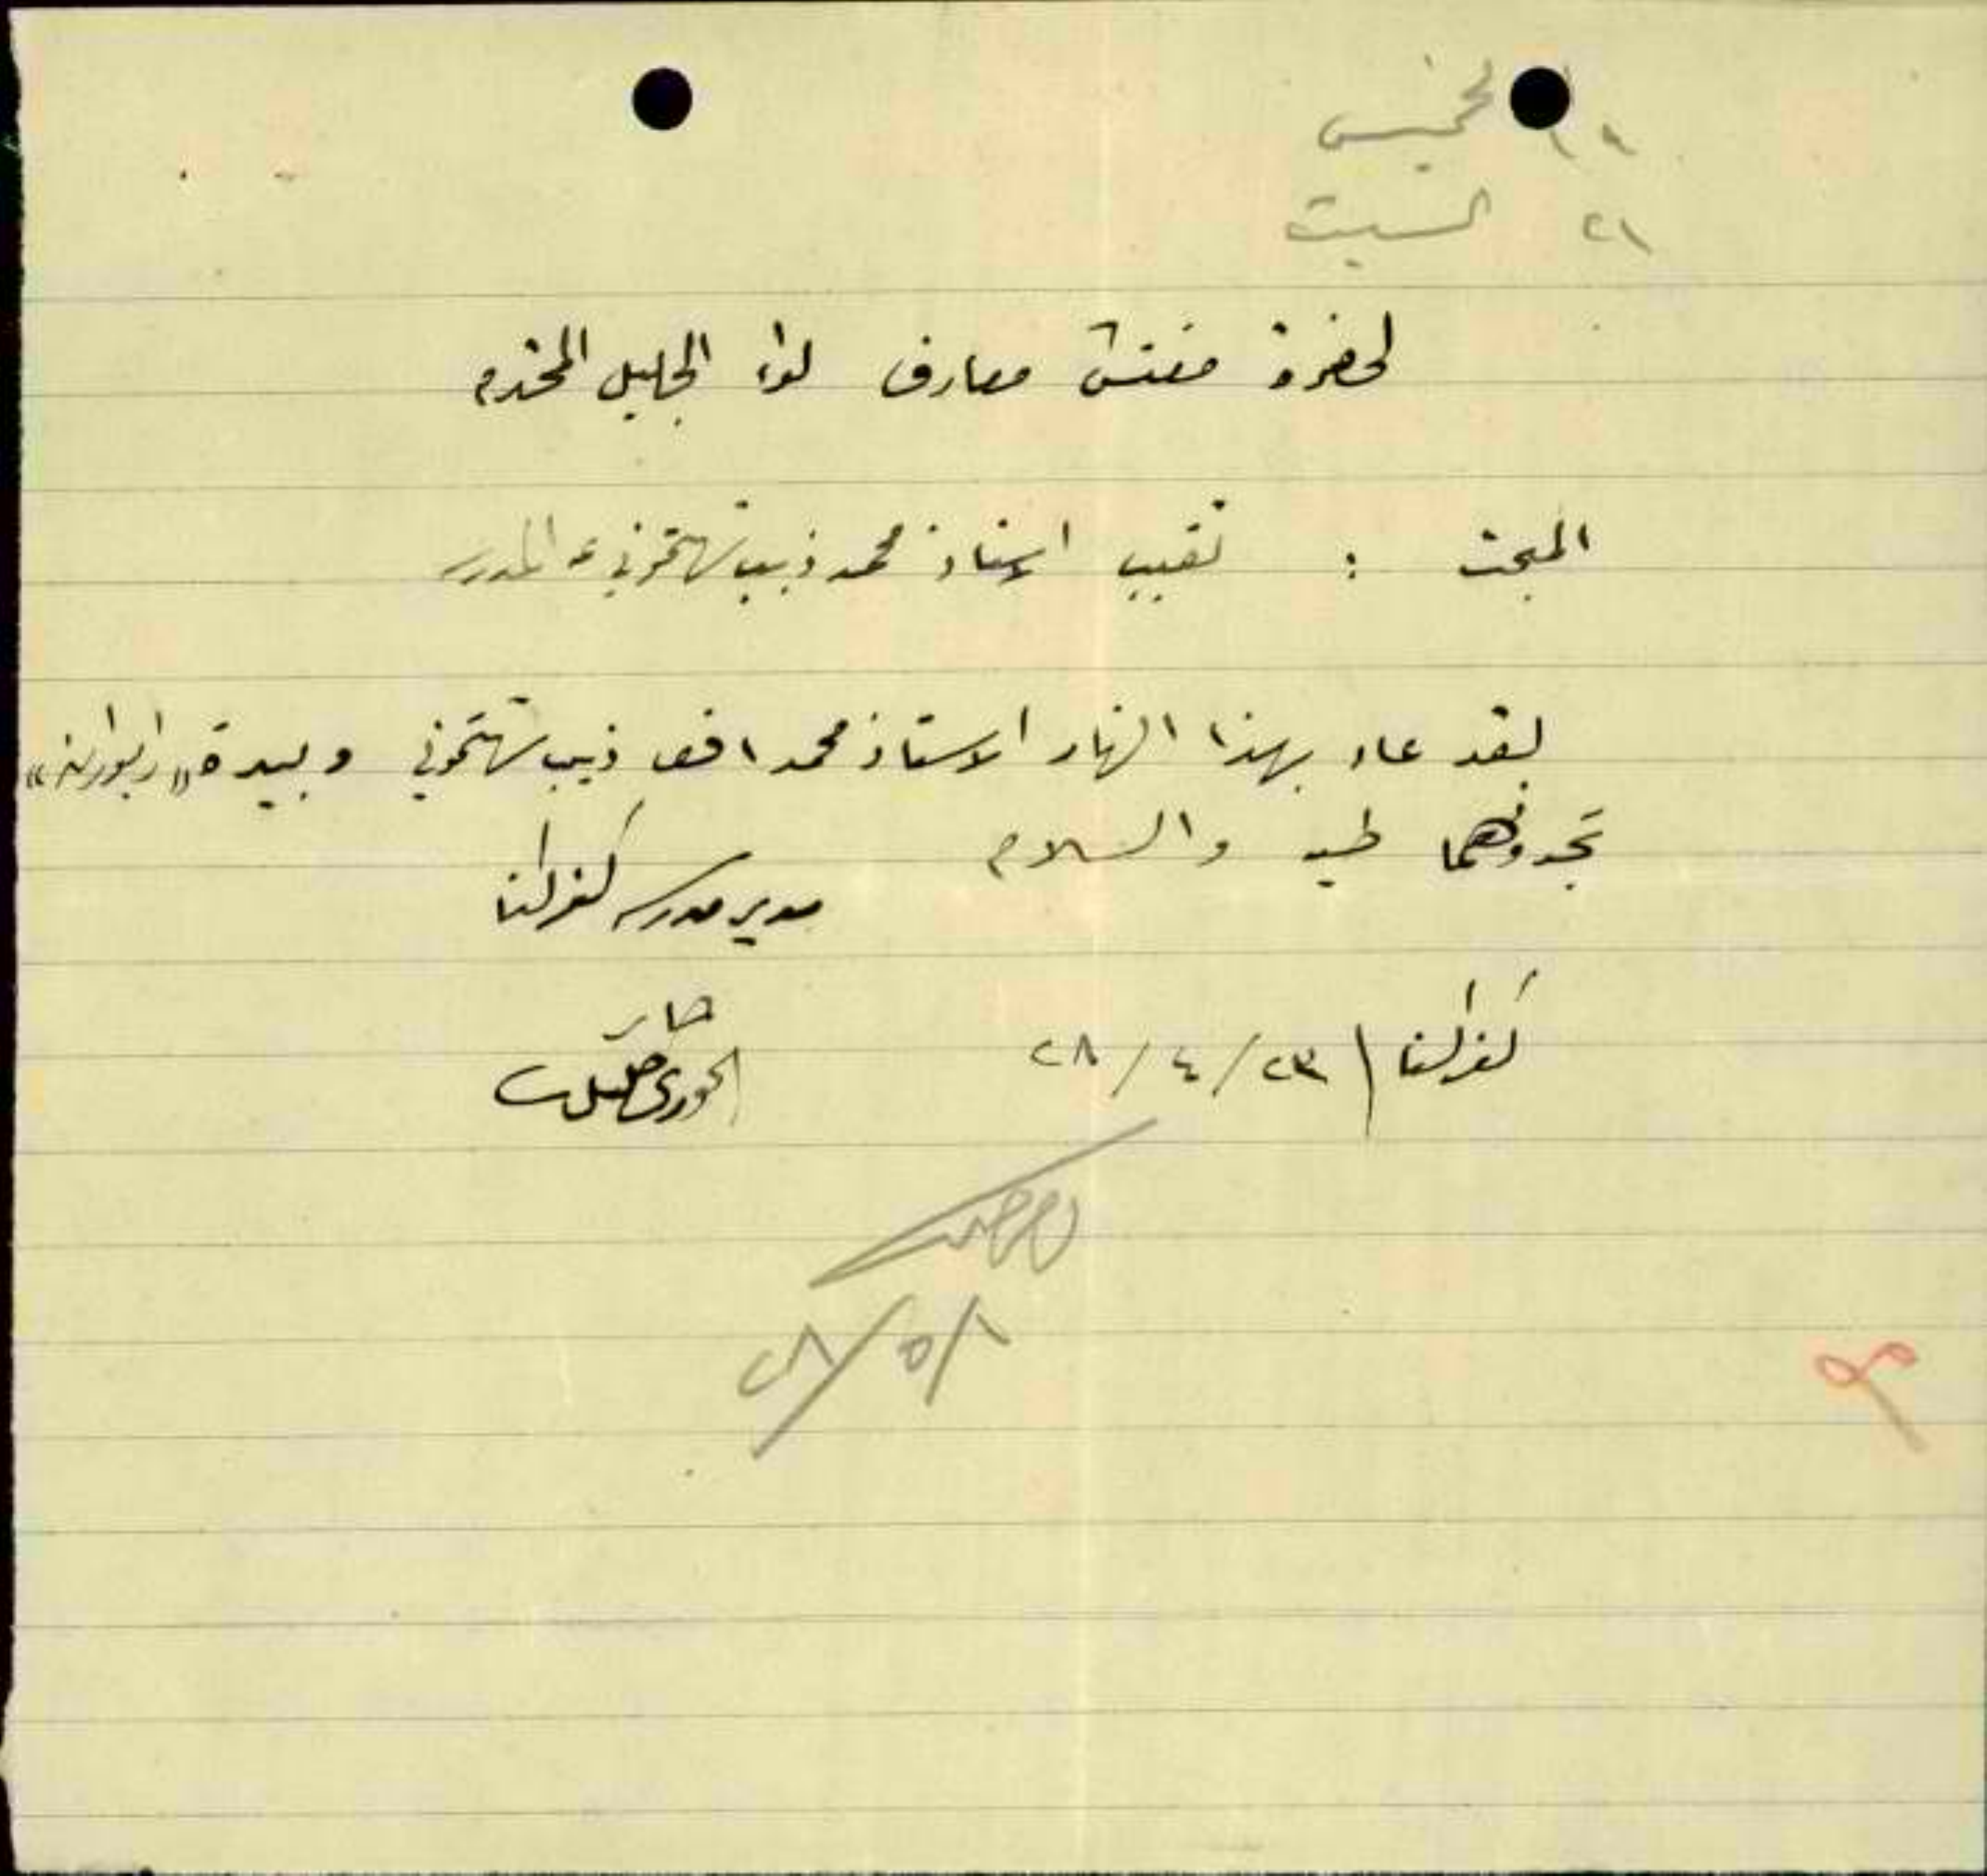 ١٩ الخميس
٢١ السبت
لحضرة مفتش معارف لواء الجليل المحترم
المبحث : تغيب الاستاذ محمد ذيب شهتموني عن المدرسة
لقد عاد بهذا النهار الاستاذ محمد افندي ذيب شهتموني وبيده
تجدونهما طيه والسلام
مدير مدرسة كفركنا
كفركنا / ٢٣ / ٤ / ٢٨
الخوري خليل
١ / ٥ / ٢٨